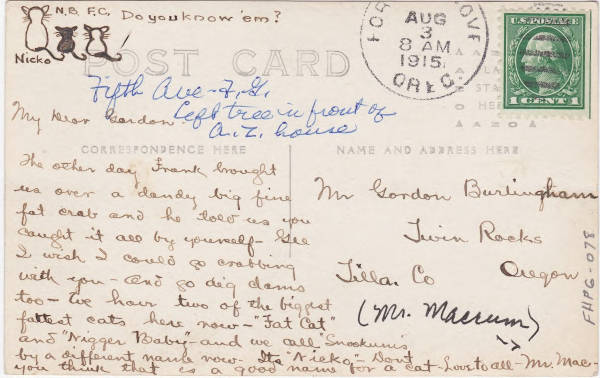 N.B. F.C. Do you know 'em?
Nicko
POST CARD
FOR OVE
AUG
3
8 AM
1915
OREG.
U.S. POSTAGE
1 CENT 1
Fifth Ave - F.G.
Left tree in front of
A.Z. house
My Dear Gordon
CORRESPONDENCE HERE
NAME AND ADDRESS HERE
The other day Frank brought
us over a dandy big fine
fat crab and he told us you
caught it all by yourself - Gee
I wish I could go crabbing
with you - and go dig clams
too - We have two of the biggest
fattest cats here now - "Fat Cat"
and "Nigger Baby" - and we call "Snookums"
by a different name now - Its "Nicko" - Dont
you think that is a good name for a cat - Love to all - Mr. Mac -
Mr Gordon Burlingham
Twin Rocks
Tilla. Co Oregon
(Mr. Macrum)
FHPG-078